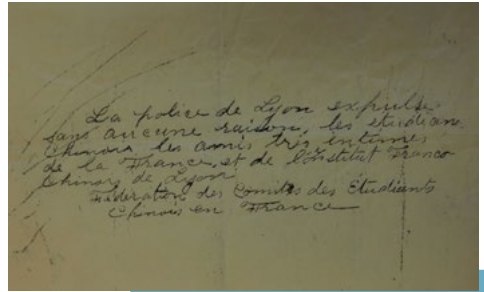 La police de Lyon expulse
sans aucune raison, les étudians
Chinois, les amis très intimes
de la France, et de l'Institut Franco
Chinois de Lyon
Fédération des Comités des Étudiants
Chinois en France